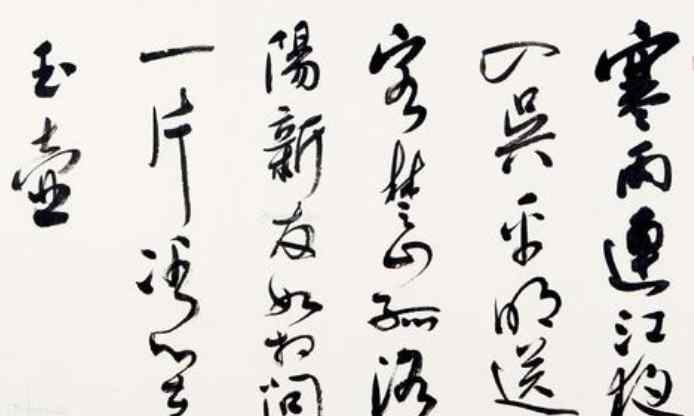 寒雨連江夜
入吳平明送
客楚山孤洛
陽新友如相問
一片冰心在
玉壺